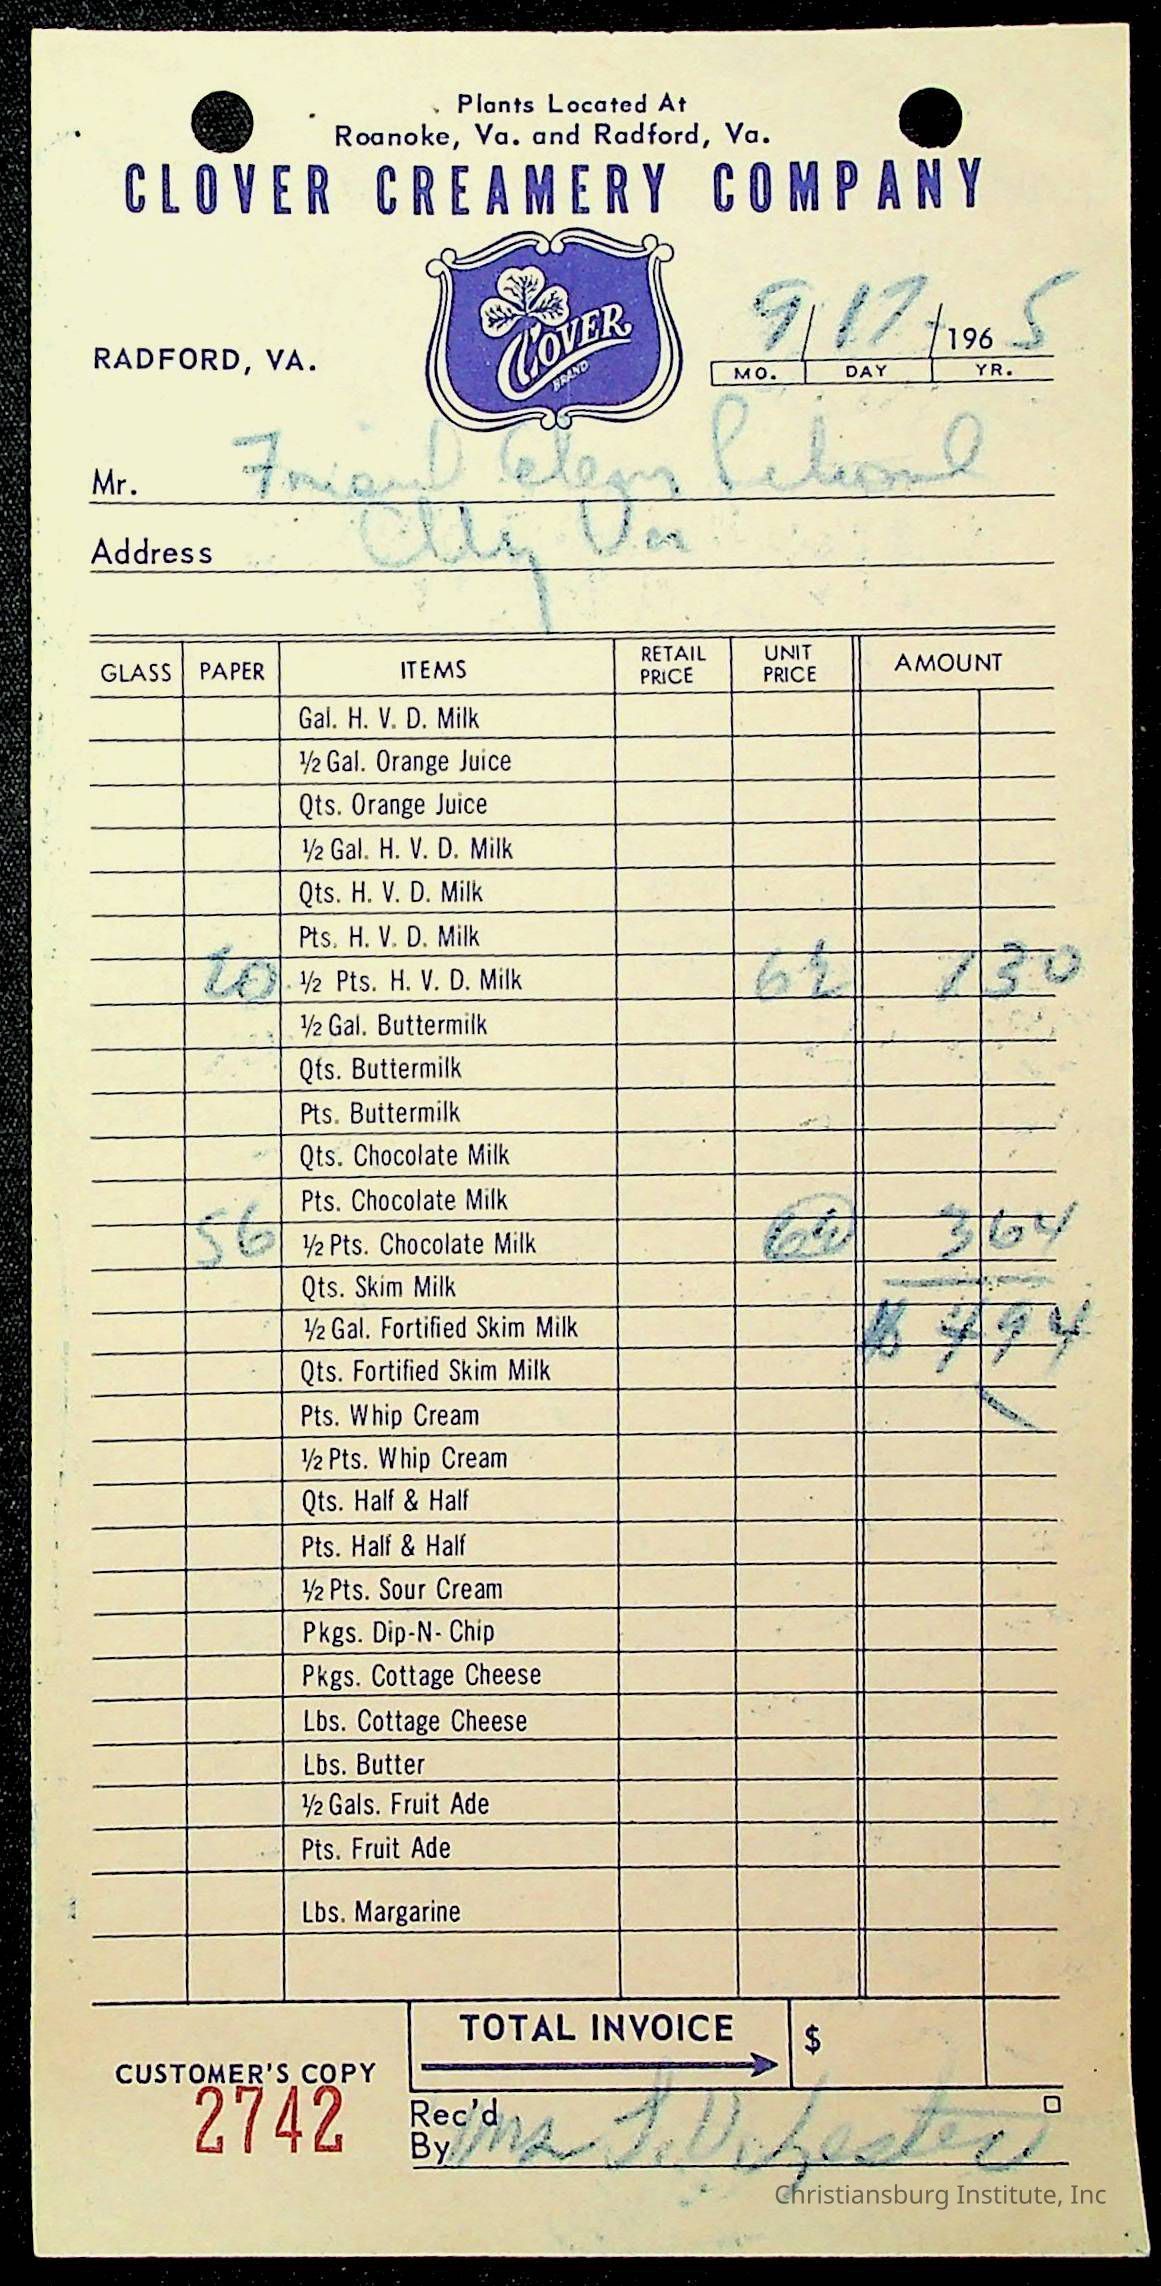 Plants Located At
Roanoke, Va. and Radford, Va.
CLOVER CREAMERY COMPANY
CLOVER
BRAND
RADFORD, VA.
9/17/1965
MO. DAY YR.
Mr. Friend Elem School
Address
GLASS PAPER ITEMS RETAIL PRICE UNIT PRICE AMOUNT
Gal. H. V. D. Milk
½ Gal. Orange Juice
Qts. Orange Juice
½ Gal. H. V. D. Milk
Qts. H. V. D. Milk
Pts. H. V. D. Milk
20 ½ Pts. H. V. D. Milk 6½ 1 30
½ Gal. Buttermilk
Qts. Buttermilk
Pts. Buttermilk
Qts. Chocolate Milk
Pts. Chocolate Milk
56 ½ Pts. Chocolate Milk 6½ 3 64
Qts. Skim Milk
½ Gal. Fortified Skim Milk $ 4 94
Qts. Fortified Skim Milk
Pts. Whip Cream
½ Pts. Whip Cream
Qts. Half & Half
Pts. Half & Half
½ Pts. Sour Cream
Pkgs. Dip-N- Chip
Pkgs. Cottage Cheese
Lbs. Cottage Cheese
Lbs. Butter
½ Gals. Fruit Ade
Pts. Fruit Ade
Lbs. Margarine
TOTAL INVOICE $
CUSTOMER'S COPY
2742
Rec'd
By Mrs
Christiansburg Institute, Inc